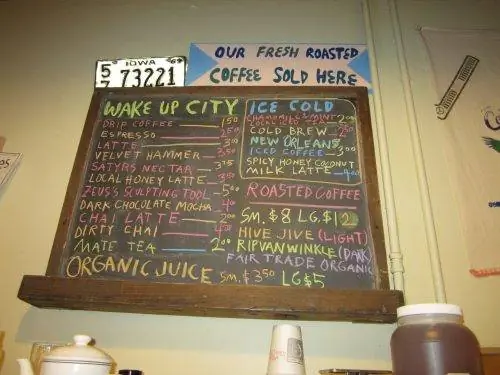 IOWA 69
57 73221
OUR FRESH ROASTED
COFFEE SOLD HERE
WAKE UP CITY
DRIP COFFEE 1.50
ESPRESSO 2.50
LATTE 3.00
VELVET HAMMER 3.50
SATYRS NECTAR 3.75
LOCAL HONEY LATTE 3.50
ZEUS'S SCULPTING TOOL 5.00
DARK CHOCOLATE MOCHA 4.00
CHAI LATTE 2.00
DIRTY CHAI 4.00
MATE TEA 2.00
ICE COLD
CHAMOMILE & MINT
LOCAL ICED TEA 2.00
COLD BREW 2.50
NEW ORLEANS
ICED COFFEE 3.00
SPICY HONEY COCONUT
MILK LATTE 4.00
ROASTED COFFEE
SM. $8 LG. $12
HIVE JIVE (LIGHT)
RIPVANWINKLE (DARK)
FAIR TRADE ORGANIC
ORGANIC JUICE SM. $3.50 LG $5